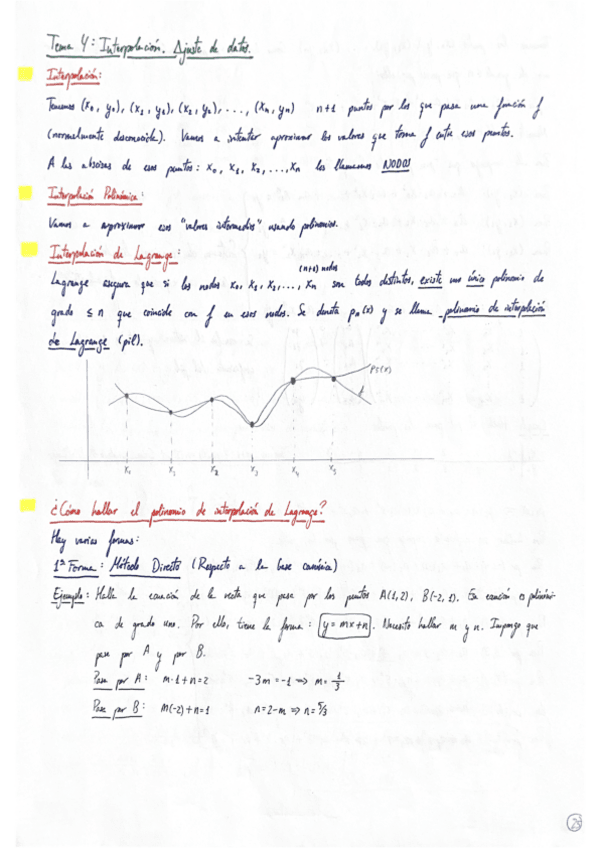 Tema 4: Interpolación. Ajuste de datos.
Interpolación:
Tenemos (x₀, y₀), (x₁, y₁), (x₂, y₂), ..., (xₙ, yₙ) n+1 puntos por los que pasa una función f
(normalmente desconocida). Vamos a intentar aproximar los valores que toma f entre esos puntos.
A las abcisas de esos puntos: x₀, x₁, x₂, ..., xₙ las llamamos NODOS
Interpolación Polinómica:
Vamos a aproximar esos "valores intermedios" usando polinomios.
Interpolación de Lagrange:
(n+1) nodos
Lagrange asegura que si los nodos x₀, x₁, x₂, ..., xₙ son todos distintos, existe un único polinomio de
grado ≤ n que coincide con f en esos nodos. Se denota pₙ(x) y se llama polinomio de interpolación
de Lagrange (pil).
P₅(x)
f
x₂ x₃ x₄ x₅
¿Cómo hallar el polinomio de interpolación de Lagrange?
Hay varias formas:
1ª Forma: Método Directo (Respecto a la base canónica)
Ejemplo: Halla la ecuación de la recta que pasa por los puntos A(1,2), B(-2,1). Esa ecuación es polinómi-
ca de grado uno. Por ello, tiene la forma: y=mx+n. Necesito hallar m y n. Impongo que
pase por A y por B.
Pase por A: m·1+n=2 -3m=-1 ⇒ m=1/3
Pase por B: m(-2)+n=1 n=2-m ⇒ n=5/3